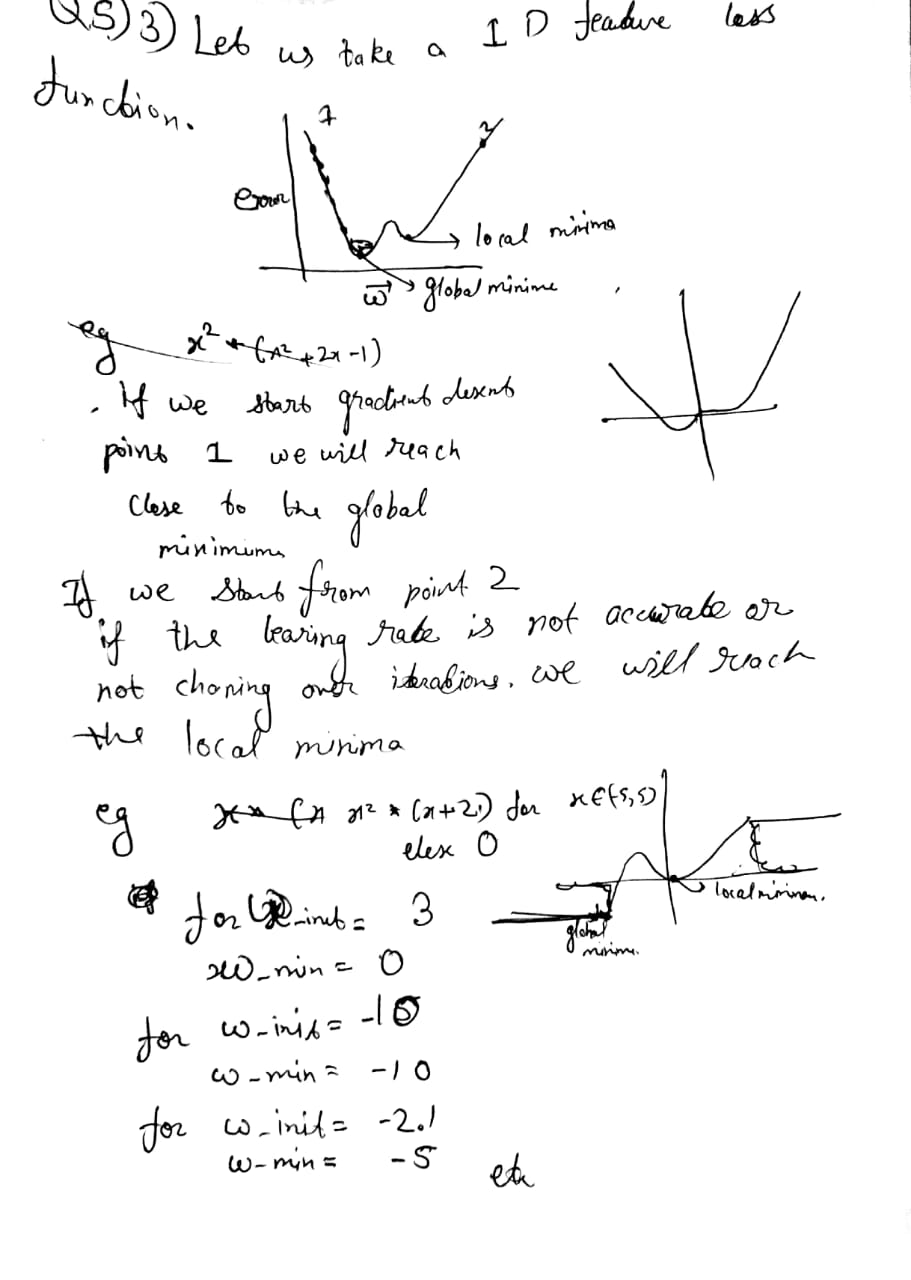 Q5) 3) Let us take a 1D feadure less
function.
1
2
Error
local minima
w global minime
eg x² * (x² + 2x - 1)
. If we start gradient desent
point 1 we will reach
Close to the global
minimum
If we start from point 2
if the learing rate is not accurate or
not channing over iterations. we will reach
the local minima
eg x² * (x+2) for x∈(-5,5)
elex 0
local minimum.
global
minima.
for w_init = 3
w_min = 0
for w_init = -10
w_min = -10
for w_init = -2.1
w_min = -5
etc